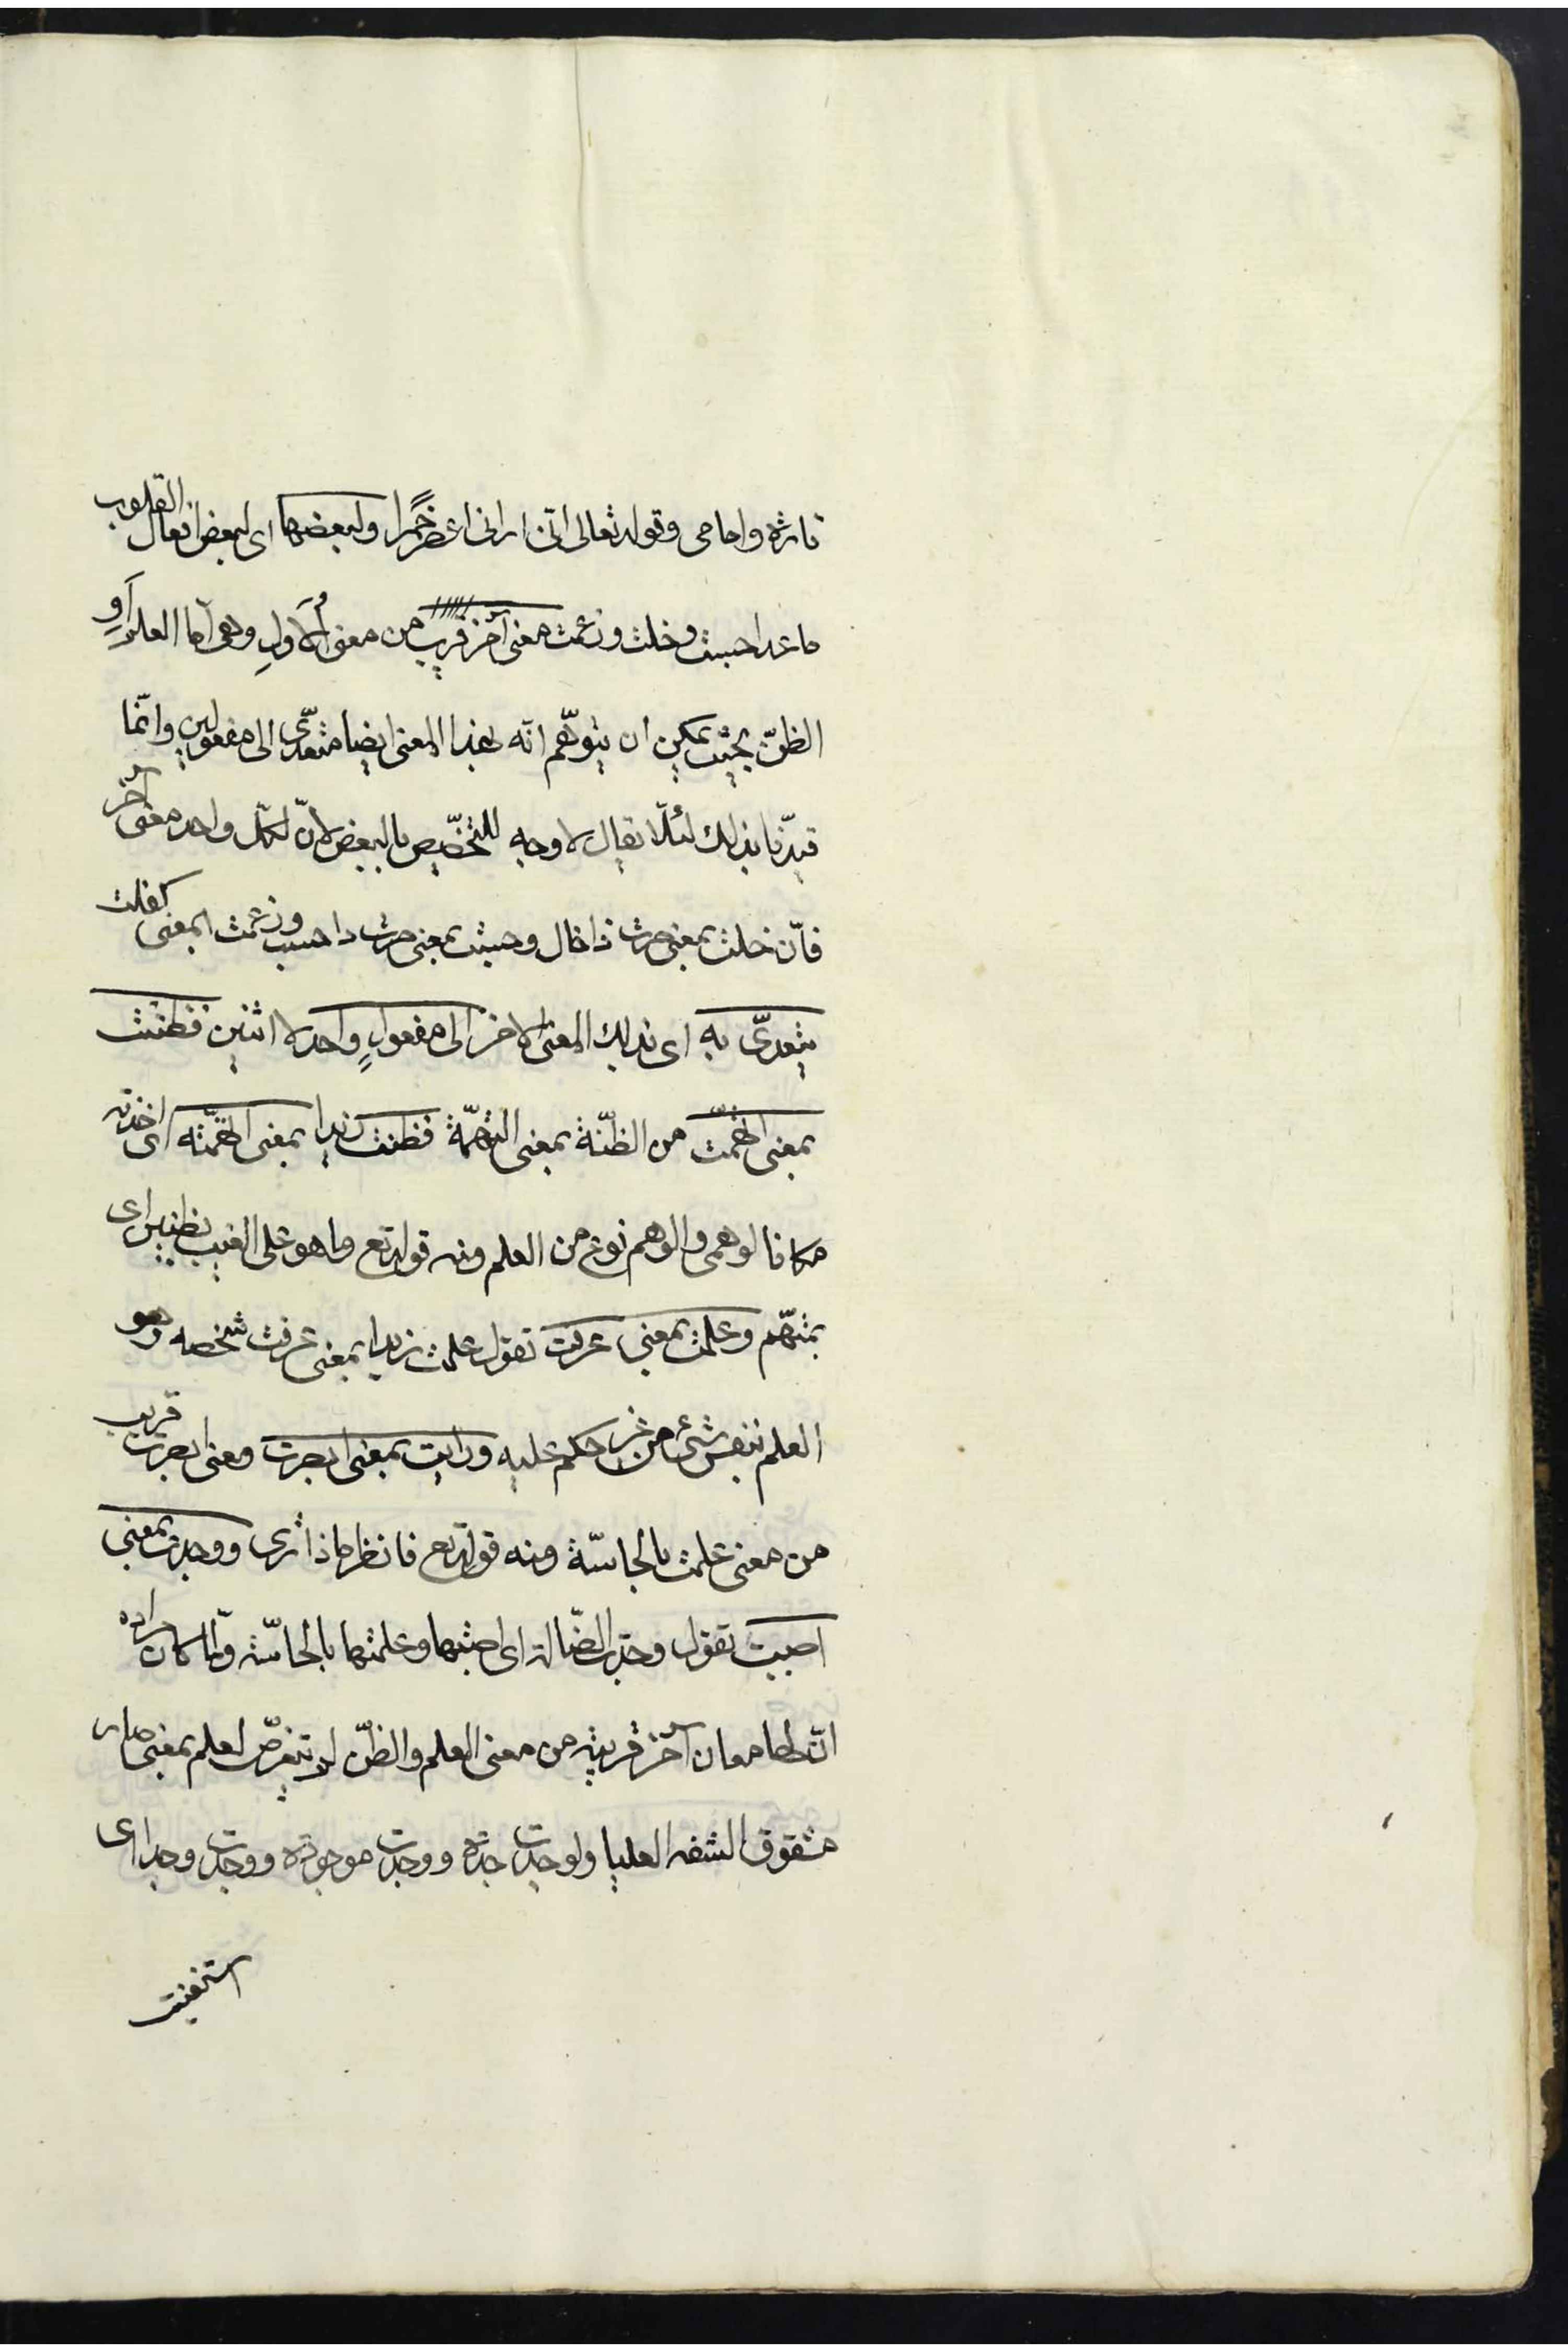 تارة وامامى وقوله تعالى انى ارانى اعصر خمرا ولبعضها اى لبعض افعال القلوب
ما عدا حسبت وخلت وزعمت معنى آخر قريب من معنى الاول وهى اما العلم او
الظن بحيث يمكن ان يتوهم انه بهذا المعنى ايضا متعدى الى مفعولين وانما
قيدنا بذلك لئلا يقال لا وجه للتخصيص بالبعض لان لكل واحد معنى آخر
فان خلت بمعنى صرت ذا خال وحسبت بمعنى صرت ذا حسب وزعمت بمعنى كفلت
يتعدى به اى بذلك المعنى الاخر الى مفعول واحد لا اثنين فظننت
بمعنى اتهمت من الظنة بمعنى التهمة فظننت زيدا بمعنى اتهمته اى اخذته
مكانا لوهمى والوهم نوع من العلم ومنه قوله تع وما هو على الغيب بظنين اى
بمتهم وعلمت بمعنى عرفت تقول علمت زيدا بمعنى عرفت شخصه وهو
العلم بنفس شئ من غير حكم عليه ورايت بمعنى ابصرت ومعنى ابصرت قريب
من معنى علمت بالحاسة ومنه قوله تع فانظر ماذا ترى ووجدت بمعنى
اصبت تقول وجدت الضالة اى اصبتها وعلمتها بالحاسة ولما كان مراده
ان لها معان آخر قريبة من معنى العلم والظن لم يتعرض لعلم بمعنى صار
مشقوق الشفه العليا ولوجدت جدة ووجدت موجدة ووجدت وجدا اى
استغنيت